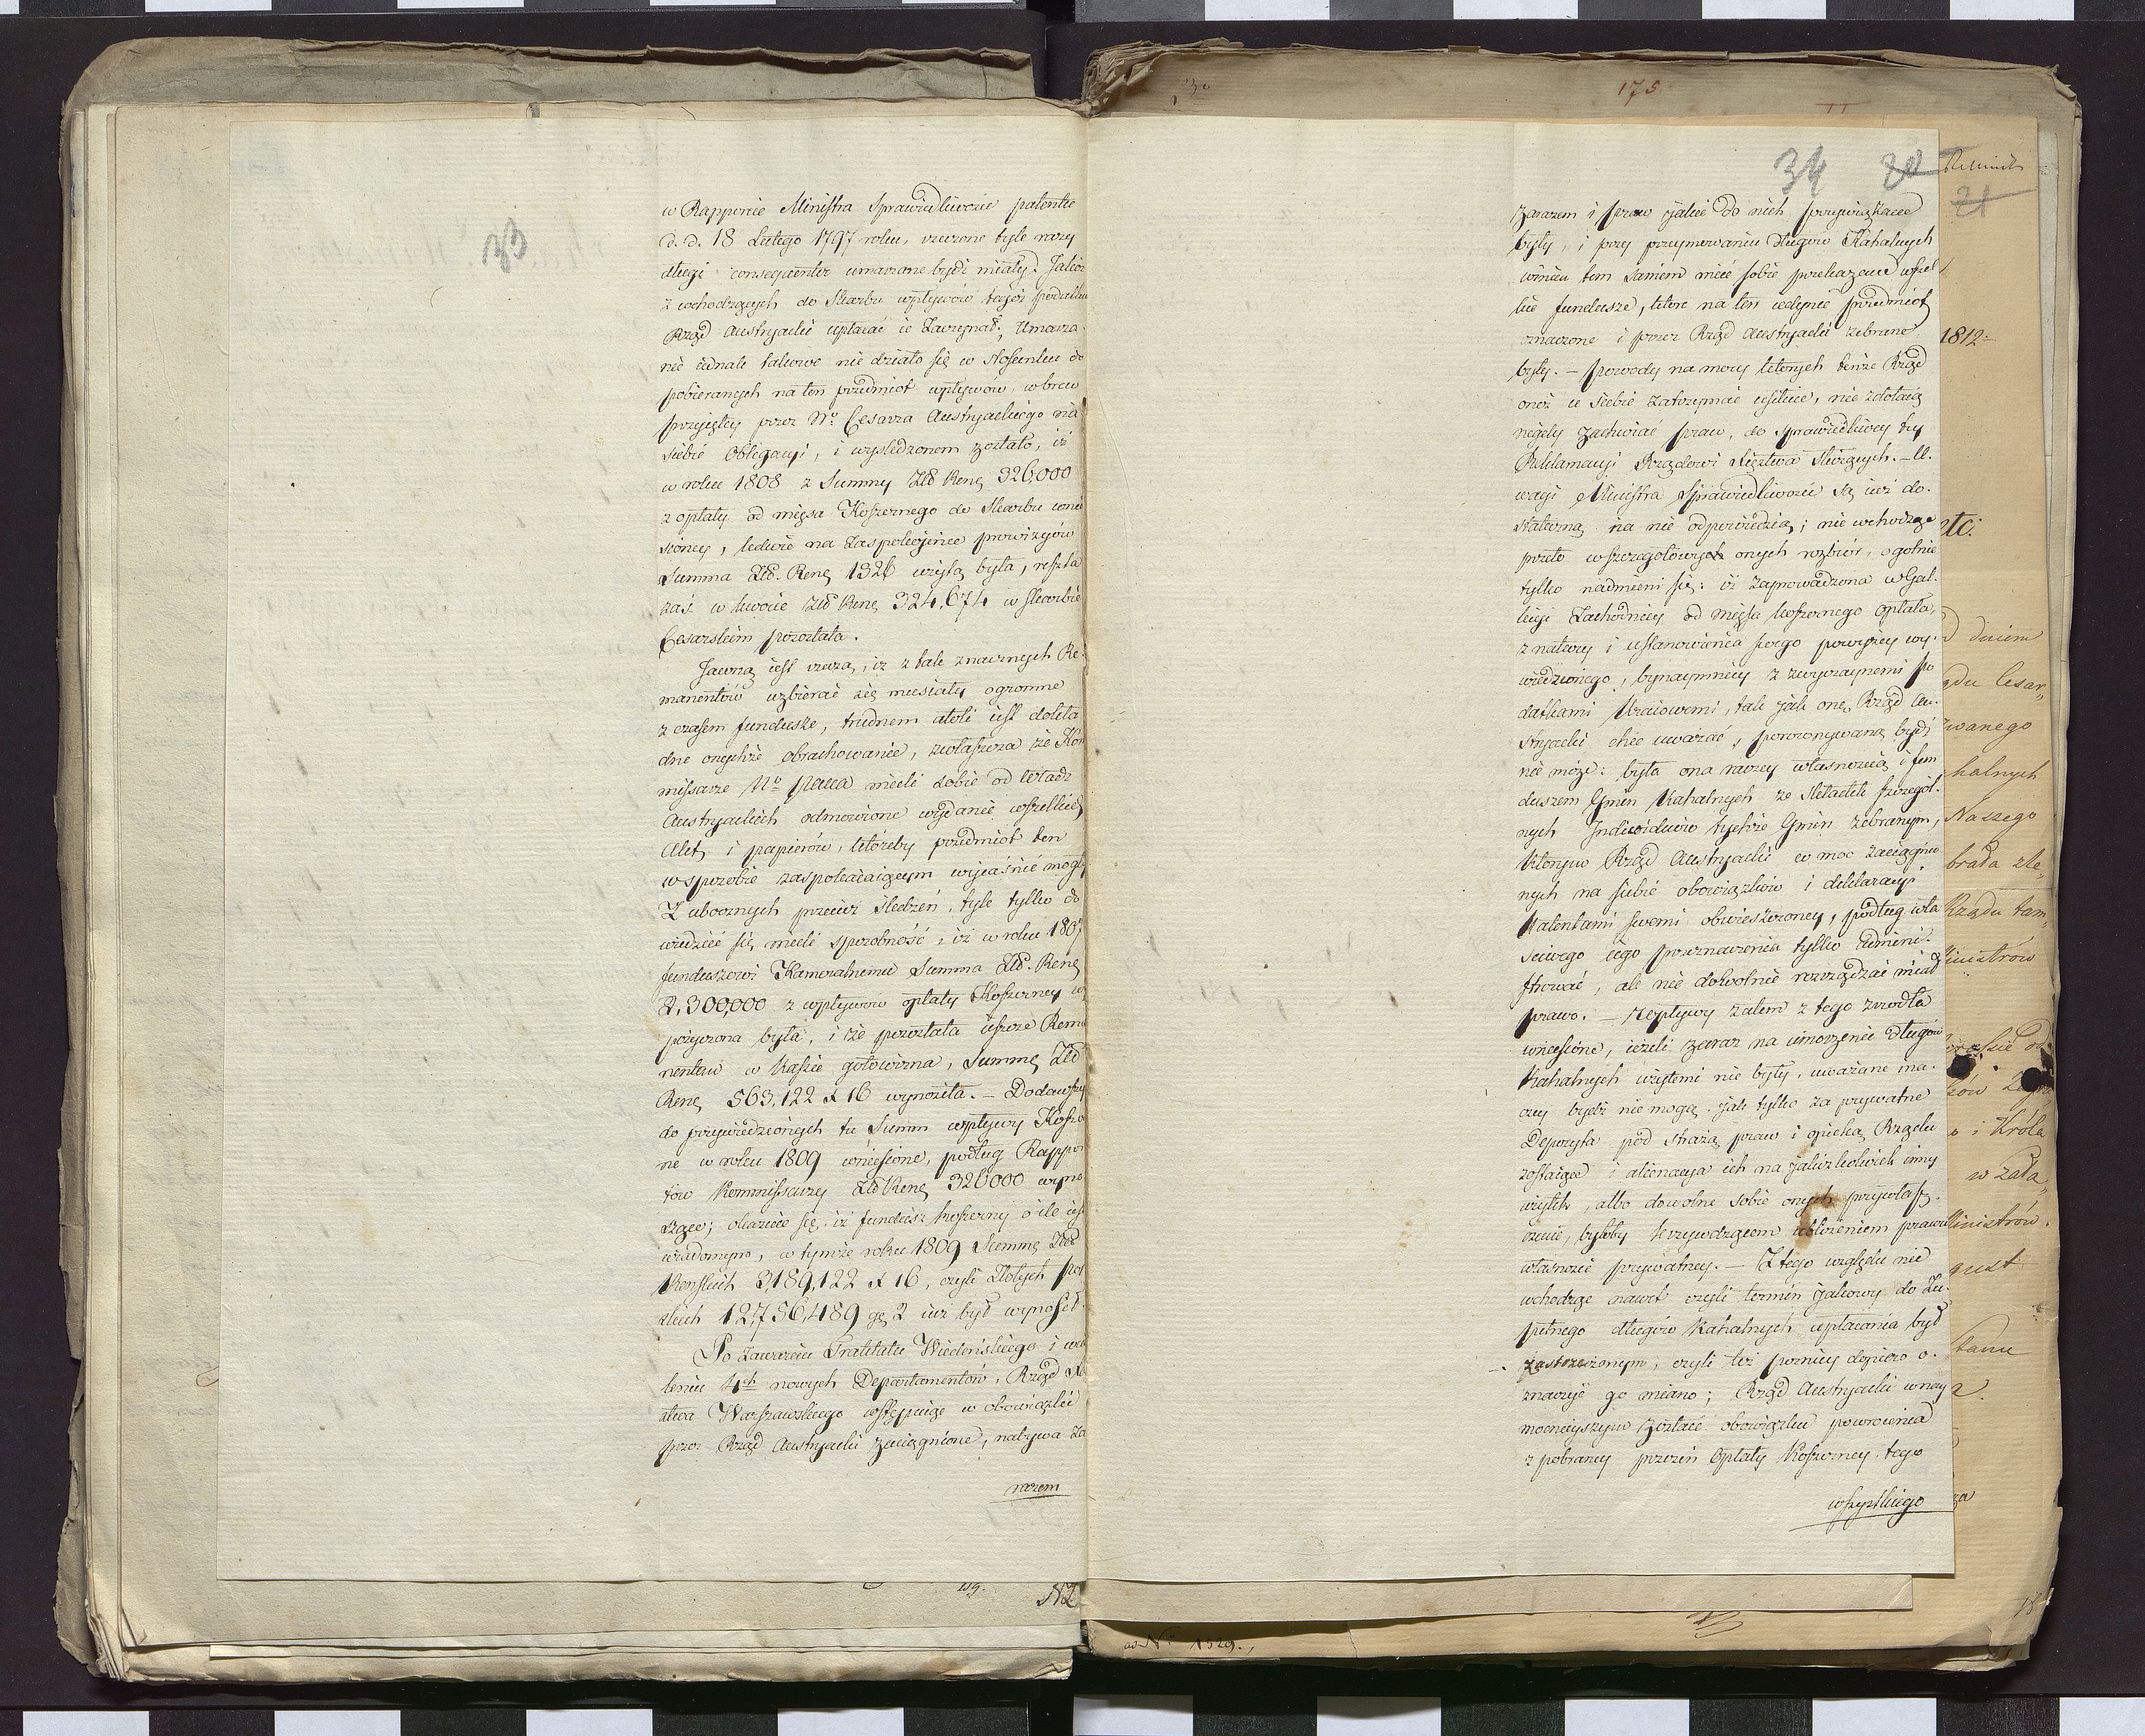 33
w Rapporcie Ministra Sprawiedliwości patentie
d. d. 18 Lutego 1797 roku, rzeczone tyle razy
długi consequenter umarzane bydź miały. Jakoż
z wchodzących do Skarbu wpływów tegoż podatku
Rząd Austryacki upłacać ie zaczynał; Umarza
nie iednak takowe nie działo się w Stosunku do
pobieranych na ten przedmiot wpływów, wbrew
przyiętey przez No: Cesarza Austryackiego na
siebie Obligacyi, i wyśledzonem zostało, iż
w roku 1808 z Summy Złł Reng 326,000
z opłaty od mięsa Koszernego do Skarbu wnie
sioney, ledwie na zaspokoienie prowizyów
Summa Złł. Reng 1326 użytą była, reszta
zaś w kwocie Złł Reng 324,674 w skarbie
Cesarskim pozostała.
Jawną iest rzeczą, iż z tak znacznych Re
manentów uzbierać się musiały ogromne
z czasem fundusze, trudnem atoli iest dokła
dne onychże obrachowanie, zwłaszcza że Kom
missarze No pana mieli sobie od Władz
Austryackich odmowione wydanie wszelkich
Akt i papierów, któreby przedmiot ten
w sposobie zaspokaiaiącym wyiaśnić mogły
Z ubocznych przecież śledzeń, tyle tylko do
wiedzieć się mieli sposobność, iż w roku 1807
funduszowi Kameralnemu Summa Złł. Reng
2,300,000 z wpływów opłaty Koszerney wy
pożyczona była, i że pozostała ieszcze Rema
nentem w Kassie gotowizna, Summę Złł
Reng 563,122 x 16 wynosiła. – Dodawszy
do przywiedzionych tu Summ wpływy Koszer
ne w roku 1809 wniesione, podług Rappor
tów Kommissarzy Złł Reng 326000 wyno
szące; okazuie się, iż fundusz koszerny o ile iest
wiadomym, w tymże roku 1809 Summę Złł
Reńskich 3,189,122 x 16, czyli Złotych pol
skich 12,756,489 gr 2 iuż był wynosił.
Po zawarciu Traktatu Wiedeńskiego i wcie
leniu 4ch nowych Departamentów, Rząd Xię
stwa Warszawskiego wstępuiąc w obowiązki
przez Rząd Austryacki zaciągnione, nabywa za
razem
175
34 20
zarazem i praw iakie do nich przywiązane
były, i przy przyymowaniu długów Kahalnych
winien tem samem mieć sobie przekazane wszel
kie fundusze, które na ten iedynie przedmiot
oznaczone i przez Rząd Austryacki zebrane
były. – powody na mocy których tenże Rząd
oneż u siebie zatrzymać usiłuie, nie zdołaią
nigdy zachwiać praw, do sprawiedliwey tey
Reklamacyi Rządowi Xięstwa służących. – U.
wagi Ministra Sprawiedliwości są iuż do.
stateczną na nie odpowiedzią; nie wchodząc
przeto w szczegółowych onych rozbiór, ogólnie
tylko nadmieni się: iż zaprowadzona w Gal.
licyi Zachodniey od mięsa koszernego opłata,
z natury i ustanowienia swego powyżey wy.
wiedzionego, bynaymniey z zwyczaynemi po
datkami kraiowemi, tak iak onę Rząd Au.
stryacki chce uważać, porownywaną bydź
nie może: była ona raczey własnością i fun
duszem Gmin Kahalnych ze składek szczegól.
nych Individuów tychże Gmin zebranym,
którym Rząd Austryacki w moc zaciągnio
nych na siebie obowiązków i deklaracyi
Patentami swemi obwieszczoney, podług wła
ściwego iego przeznaczenia tylko admini.
strować, ale nie dowolnie rozrządzać miał
prawo. – Wpływy zatem z tego źrodła
wniesione, ieżeli zaraz na umorzenie Długów
Kahalnych użytemi nie były, uważane ina.
czey bydź nie mogą, iak tylko za prywatne
Depozyta pod strażą praw i opieką Rządu
zostaiące i alienacya ich na iakiżkolwiek inny
użytek, albo dowolne sobie onych przywłasz.
czenie, byłoby krzywdzącem ubliżeniem prawu
własności prywatney. – Z tego względu nie
wchodząc nawet czyli termin iakowy do Zu.
pełnego długów Kahalnych upłacenia był
zastrzeżonym, czyli też poźniey dopiero o.
znaczyć go miano; Rząd Austryacki w nay
mocnieyszym zostaie obowiązku powrocenia
z pobraney przezeń Opłaty Koszerney tego
wszystkiego
21
1812
etc:
dniem
du Cesar„
wanego
halnych
Naszego
brada zle„
Rządu tam„
inistrow
i Króla
w Zała„
Ministrów.
gust
Stanu
ad No 1529.